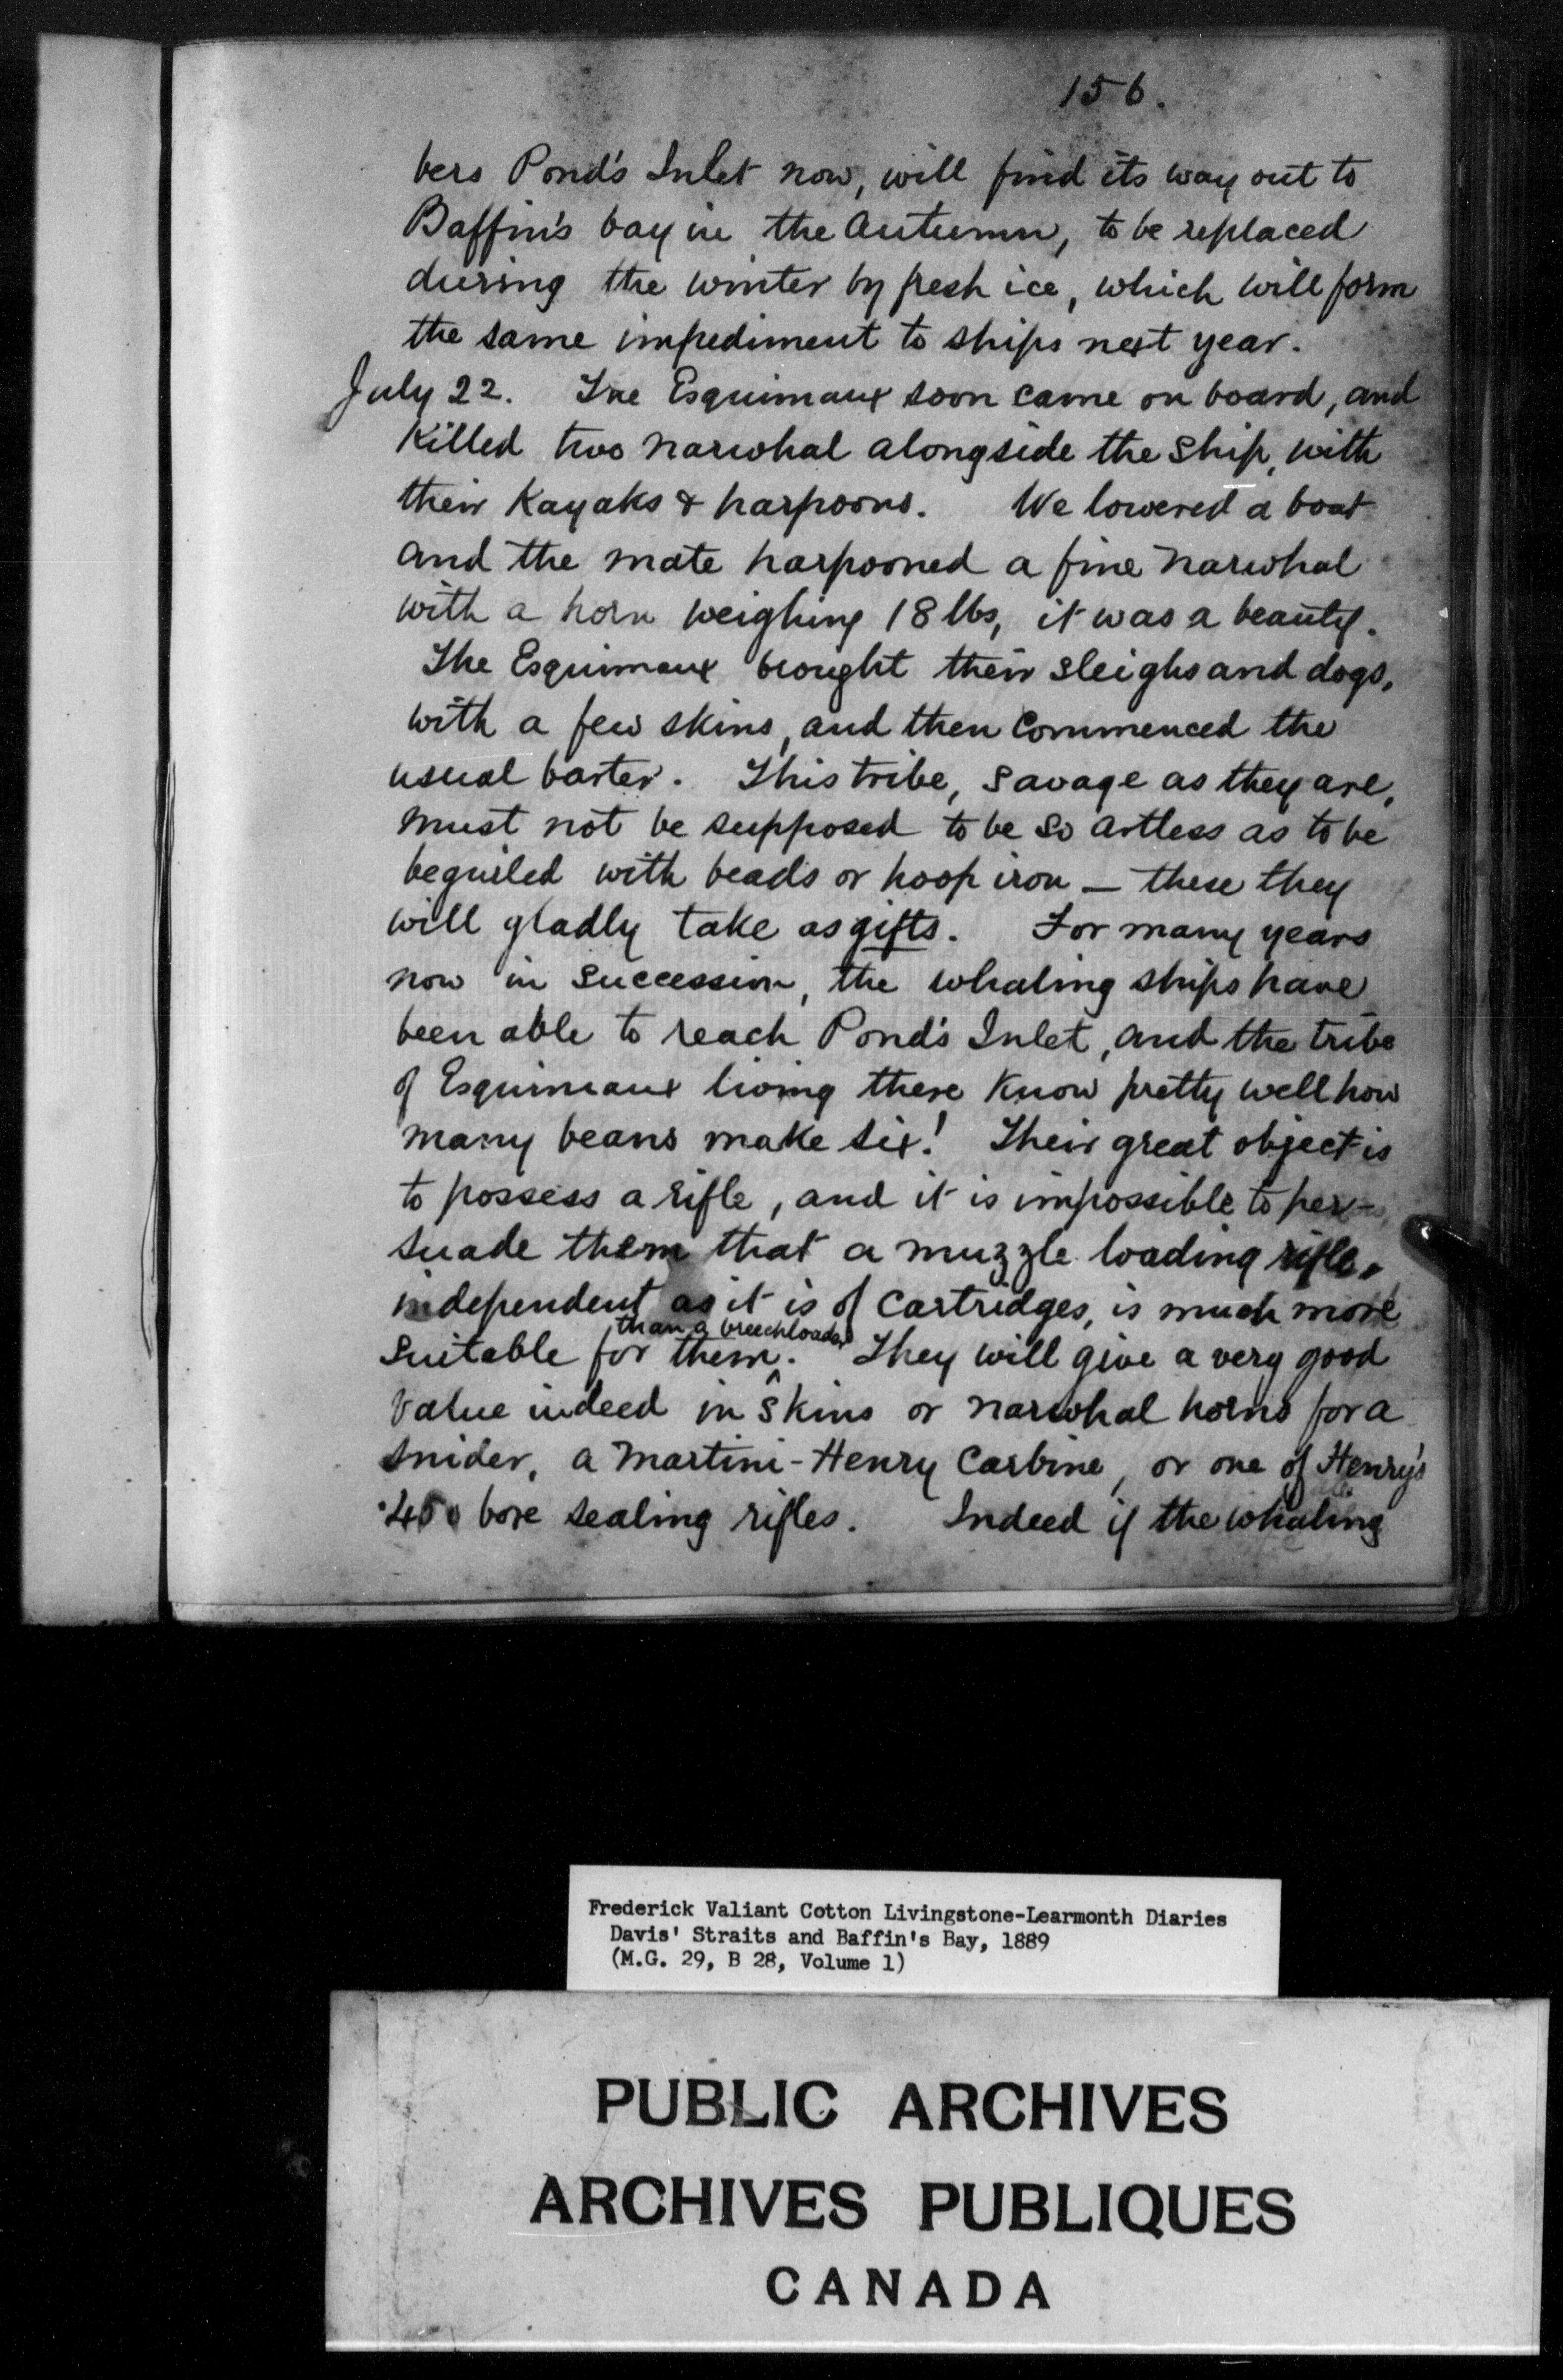 156.
bers Pond's Inlet now, will find its way out to
Baffin's bay in the Autumn, to be replaced
during the winter by fresh ice, which will form
the same impediment to ships next year.
July 22. The Esquimaux soon came on board, and
killed two narwhal alongside the ship, with
their Kayaks & harpoons. We lowered a boat
and the mate harpooned a fine narwhal
with a horn weighing 18 lbs, it was a beauty.
The Esquimaux brought their sleighs and dogs,
with a few skins, and then commenced the
usual barter. This tribe, savage as they are,
must not be supposed to be so artless as to be
beguiled with beads or hoop iron — these they
will gladly take as gifts. For many years
now in succession, the whaling ships have
been able to reach Pond's Inlet, and the tribe
of Esquimaux living there know pretty well how
many beans make six! Their great object is
to possess a rifle, and it is impossible to per-
suade them that a muzzle loading rifle,
independent as it is of cartridges, is much more
than a breechloader
suitable for them. They will give a very good
value indeed in skins or narwhal horns for a
snider, a Martini-Henry Carbine, or one of Henry's
.450 bore sealing rifles. Indeed if the whaling
Frederick Valiant Cotton Livingstone-Learmonth Diaries
Davis' Straits and Baffin's Bay, 1889
(M.G. 29, B 28, Volume 1)
PUBLIC ARCHIVES
ARCHIVES PUBLIQUES
CANADA